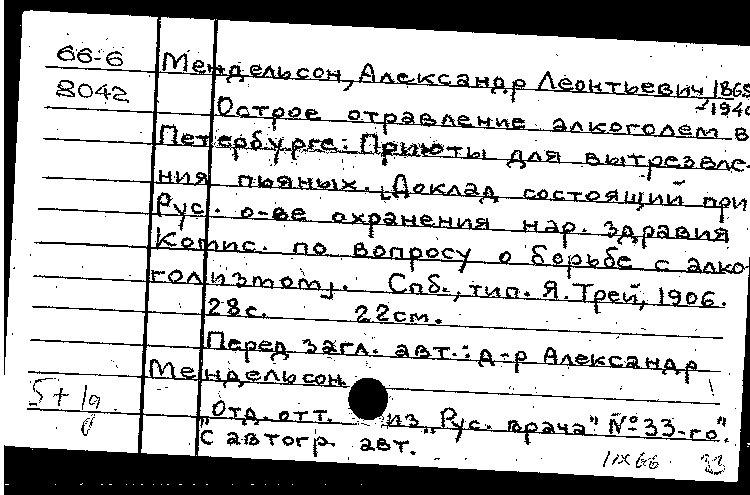 66-6 Мендельсон, Александр Леонтьевич 1865
8042 -1940
Острое отравление алкоголем в
Петербурге: Приюты для вытрезвле-
ния пьяных. [Доклад состоящий при
Рус. о-ве охранения нар. здравия
Комис. по вопросу о борьбе с алко
голизмом]. Спб., тип. Я. Трей, 1906.
28с. 22см.
Перед загл. авт.: д-р Александр
Мендельсон.
5+1g
"Отд. отт. из "Рус. врача" № 33-го".
С автогр. авт.
1 IX 66 33